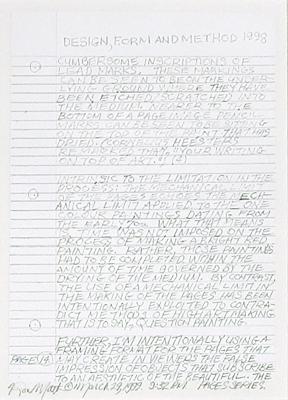 DESIGN, FORM AND METHOD 1998
CUMBERSOME INSCRIPTIONS OF
LEAD MARKS. THESE MARKINGS
CAN BE SEEN TO BE ON THE UNDER-
LYING GROUND WHERE THEY HAVE
BEEN ETCHED, SCRATCHED INTO
THE MEDIUM NEARER TO THE
BOTTOM OF PAGE
ON THE TOP OF THE PAINT THAT HAS
DRIED.
ON TOP OF ART."
INTRINSIC TO THE LIMITATION IN THE
PROCESS: THE MECHANICAL
ANICAL LIMIT APPLIED TO THE ONE
COLOUR PAINTINGS DATING FROM
THE YEAR
IMPOSED ON THE
PROCESS OF MAKING A BRIGHT RED
PAINTING. RATHER THOSE PAINTINGS
HAD TO BE COMPLETED WITHIN THE
AMOUNT OF TIME GOVERNED BY THE
DRYING OF THE MEDIUM. BY CONTRAST,
THE USE OF A MECHANICAL LIMIT IN
THE MAKING OF THE PAGES HAS BEEN
INTENTIONALLY EXPLOITED TO CONTRA-
DICT METHODS OF HIGH ART MAKING
THAT IS TO SAY, QUESTION PAINTING.
FURTHER, I'M INTENTIONALLY USING A
FRAMING FORMAT FOR THE PAGES THAT
MAY CREATE IN VIEWERS THE FALSE
IMPRESSION OF OBJECTS THAT SUBSCRIBE
TO AN AESTHETIC OF THE BEAUTIFUL. THE
PAGE (4)
© MARCH 29, 1999. 9:52 P.M. PAGES SERIES.